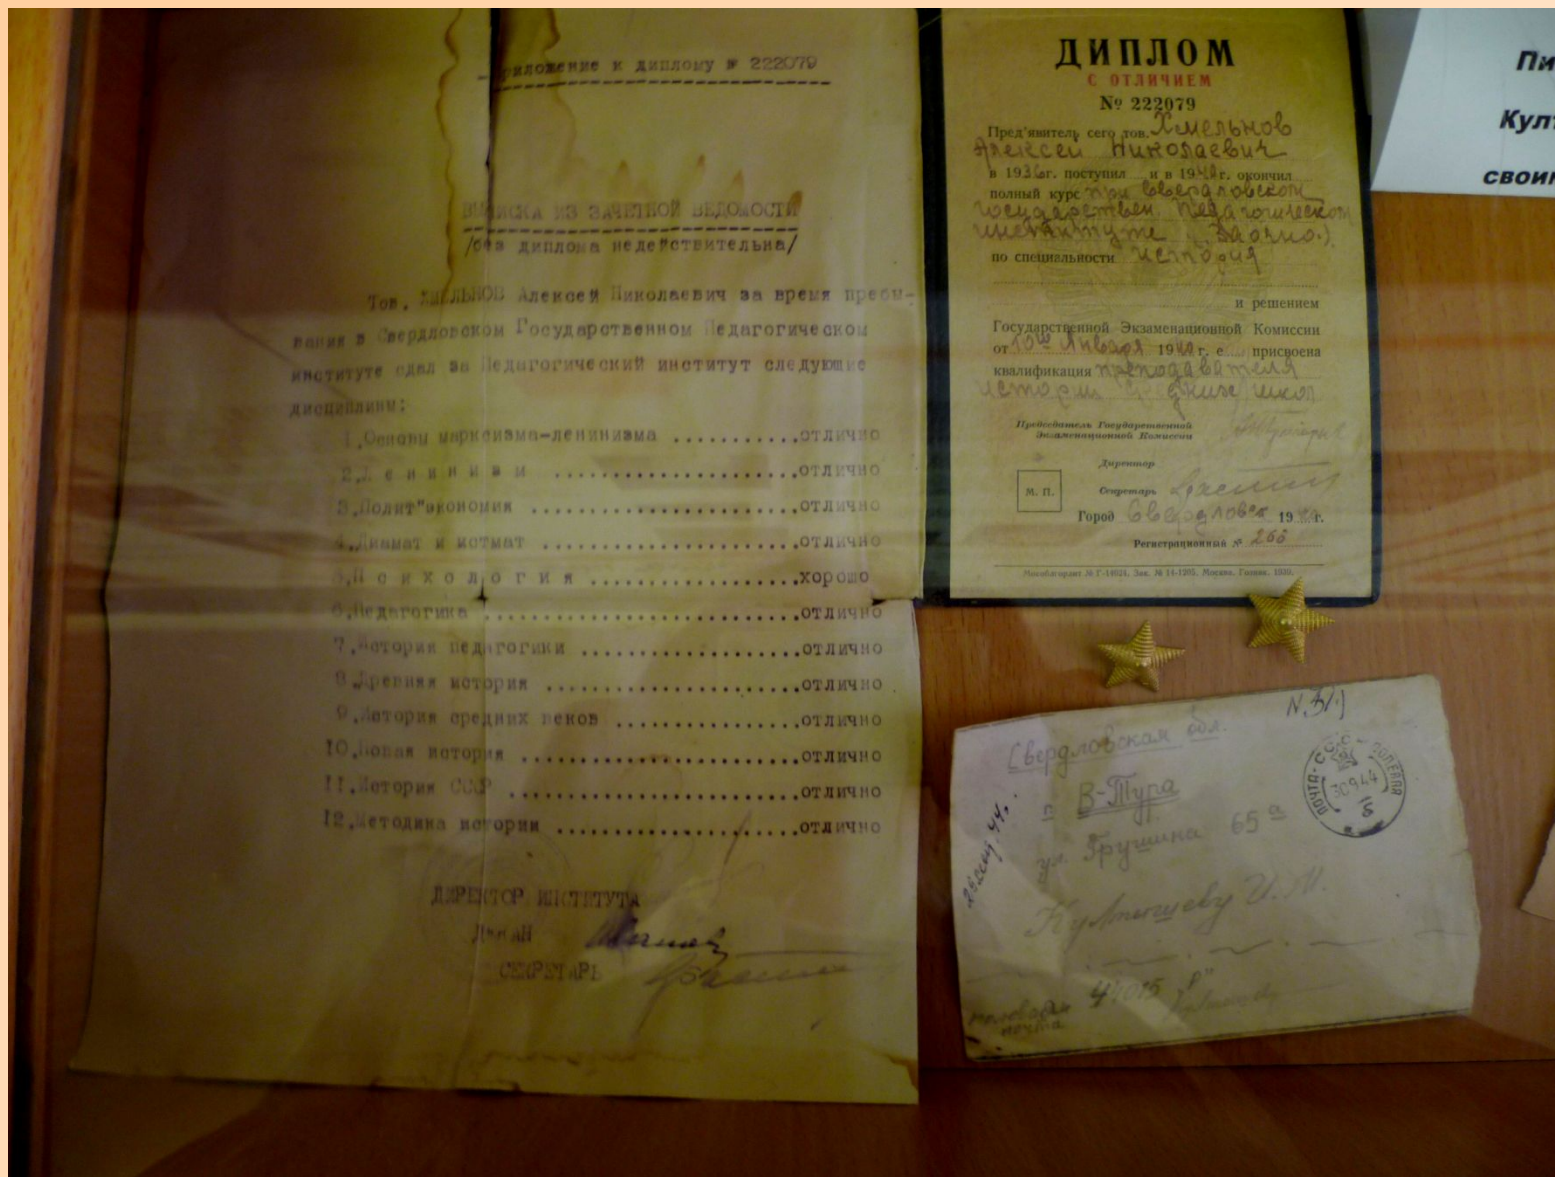 Приложение к диплому № 222079
ВЫПИСКА ИЗ ЗАЧЕТНОЙ ВЕДОМОСТИ
/без диплома недействительна/
Тов. ХМЕЛЬНОВ Алексей Николаевич за время пребы-
вания в Свердловском Государственном Педагогическом
институте сдал за Педагогический институт следующие
дисциплины:
1.Основы марксизма-ленинизма ............отлично
2.Л е н и н и з м .....................отлично
3.Полит"экономия .......................отлично
4.Диамат и истмат ......................отлично
5.П с и х о л о г и я ..................хорошо
6.Педагогика ...........................отлично
7.История педагогики ...................отлично
8.Древняя история ......................отлично
9.История средних веков ................отлично
10.Новая история .......................отлично
11.История СССР ........................отлично
12.Методика истории ....................отлично
ДИРЕКТОР ИНСТИТУТА
ДЕКАН
СЕКРЕТАРЬ
ДИПЛОМ
С ОТЛИЧИЕМ
№ 222079
Пред'явитель сего тов. Хмельнов
Алексей Николаевич
в 1936г. поступил и в 1940г. окончил
полный курс при Свердловском
государствен. педагогическом
институте (заочно.)
по специальности история
и решением
Государственной Экзаменационной Комиссии
от 10го Января 1940г. е присвоена
квалификация преподавателя
истории средних школ
Председатель Государственной
Экзаменационной Комиссии
Директор
М. П.
Секретарь
Город Свердловск 1940г.
Регистрационный № 266
Москва. Гознак. 1939.
Пи
Култ
своим
N.31.)
Свердловская обл.
г. В-Тура
ул. Грушина 65 а
Култышеву И.М.
28 сент. 44г.
ПОЧТА-СССР-ПОЛЕВАЯ
30 9 44
полевая
почта
44015 "Р"